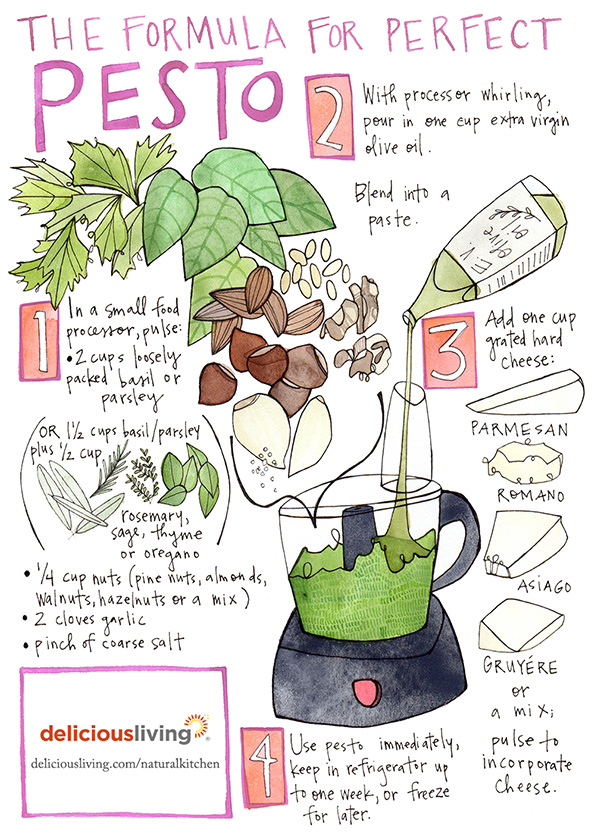 THE FORMULA FOR PERFECT
PESTO
1
In a small food
processor, pulse:
• 2 cups loosely
packed basil or
parsley
(OR 1 1/2 cups basil/parsley
plus 1/2 cup
rosemary,
sage, thyme
or oregano)
• 1/4 cup nuts (pine nuts, almonds,
walnuts, hazelnuts or a mix)
• 2 cloves garlic
• pinch of coarse salt
2
With processor whirling,
pour in one cup extra virgin
olive oil.
Blend into a
paste.
E.V.
olive
oil
3
Add one cup
grated hard
cheese:
PARMESAN
ROMANO
ASIAGO
GRUYÉRE
or
a mix;
pulse to
incorporate
cheese.
4
Use pesto immediately,
keep in refrigerator up
to one week, or freeze
for later.
deliciousliving®
deliciousliving.com/naturalkitchen